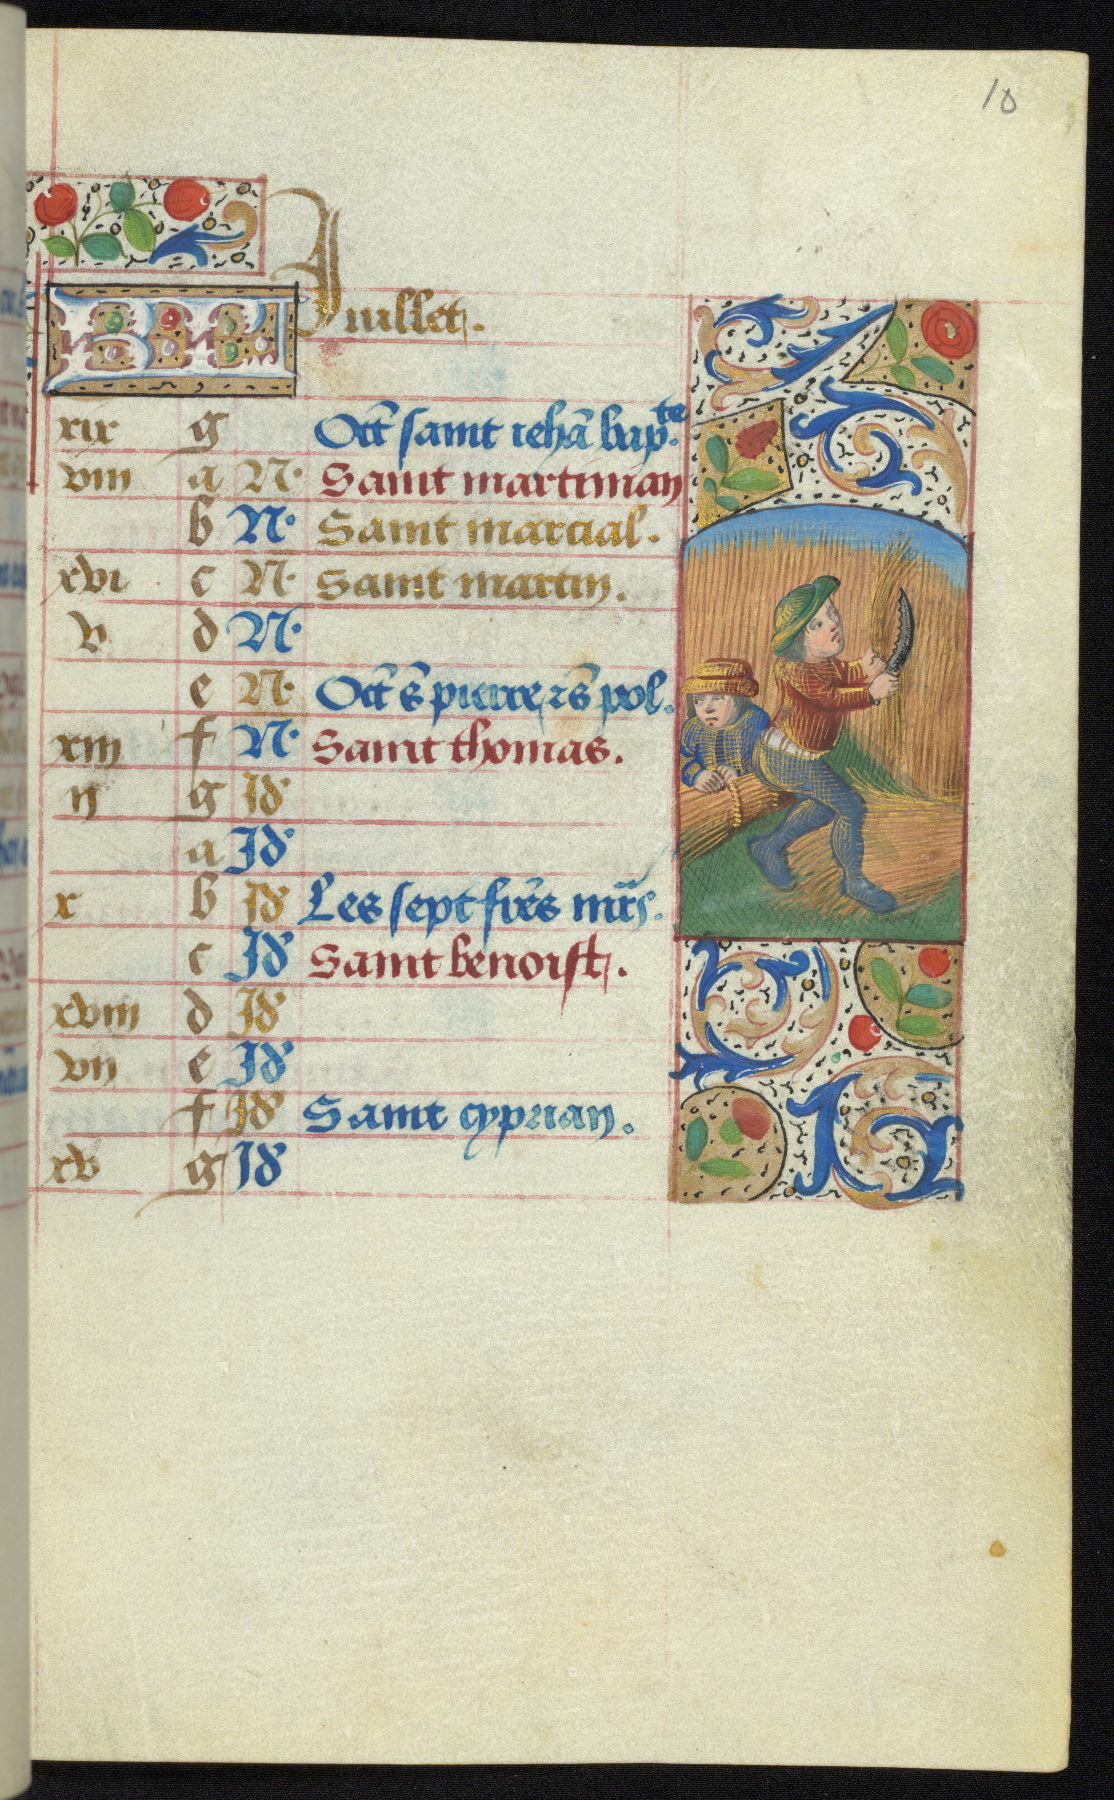 10
KL Juillet.
xix g Oct saint iehā bapte.
viii a N. Saint martinian
b N. Saint marcial.
xvi c N. Saint martin.
v d N.
e N. Oct s pierre & s pol.
xiii f N. Saint thomas.
ii g Id
a Id
x b Id Les sept fres mrs.
c Id Saint benoist.
xviii d Id
vii e Id
f Id Saint cyprian.
xv g Id